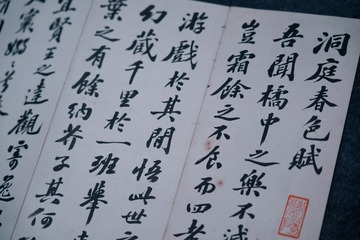 洞庭春色賦
吾聞橘中之樂不減
豈霜餘之不食而四老
游戲於其間悟此世
幻藏千里於一班舉
葉之有餘納芥子其何
宜賢王之達觀寄逸
寰嫋兮春